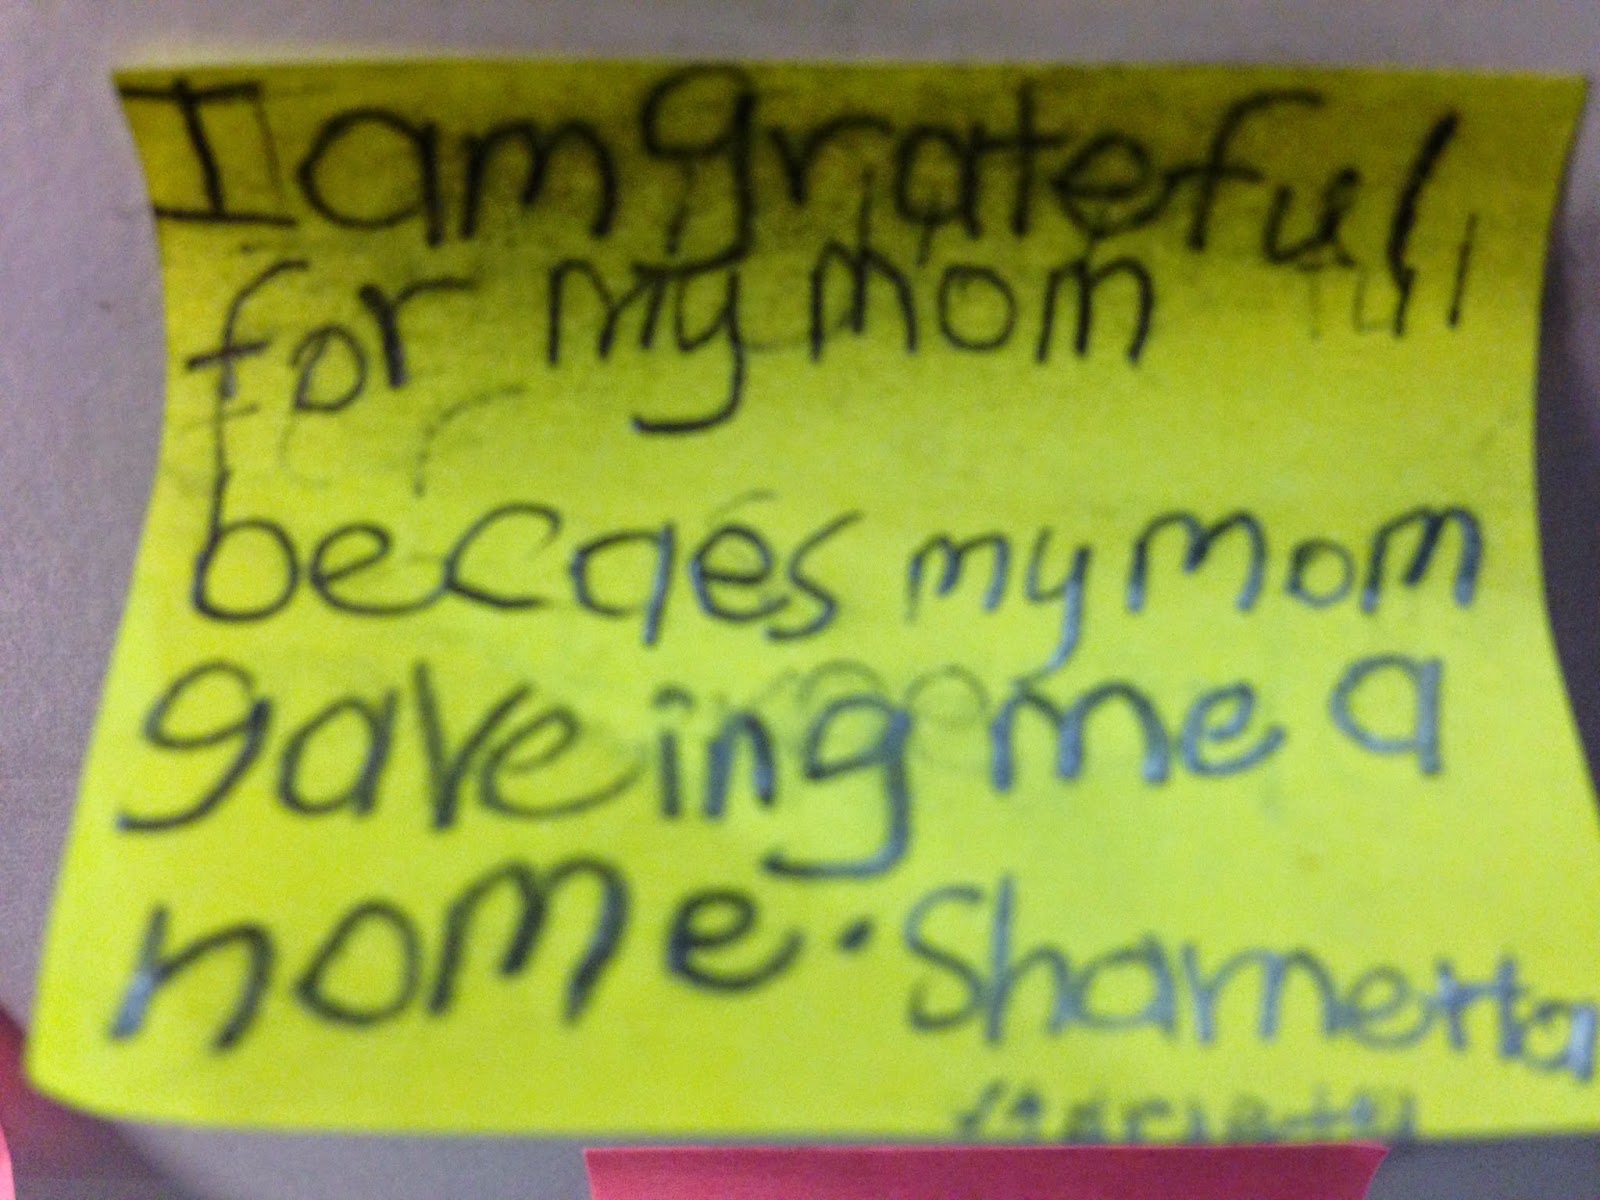 I am grateful
for my mom
becaes my mom
gaveing me a
home. Shametta